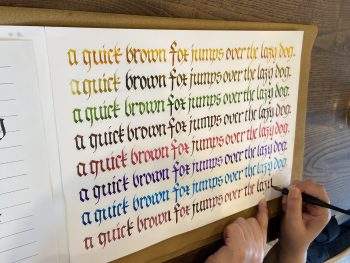 a quick brown fox jumps over the lazy dog.
a quick brown fox jumps over the lazy dog.
a quick brown fox jumps over the lazy dog.
a quick brown fox jumps over the lazy dog.
a quick brown fox jumps over the lazy dog.
a quick brown fox jumps over the lazy dog.
a quick brown fox jumps over the lazy dog.
a quick brown fox jumps over the lazy